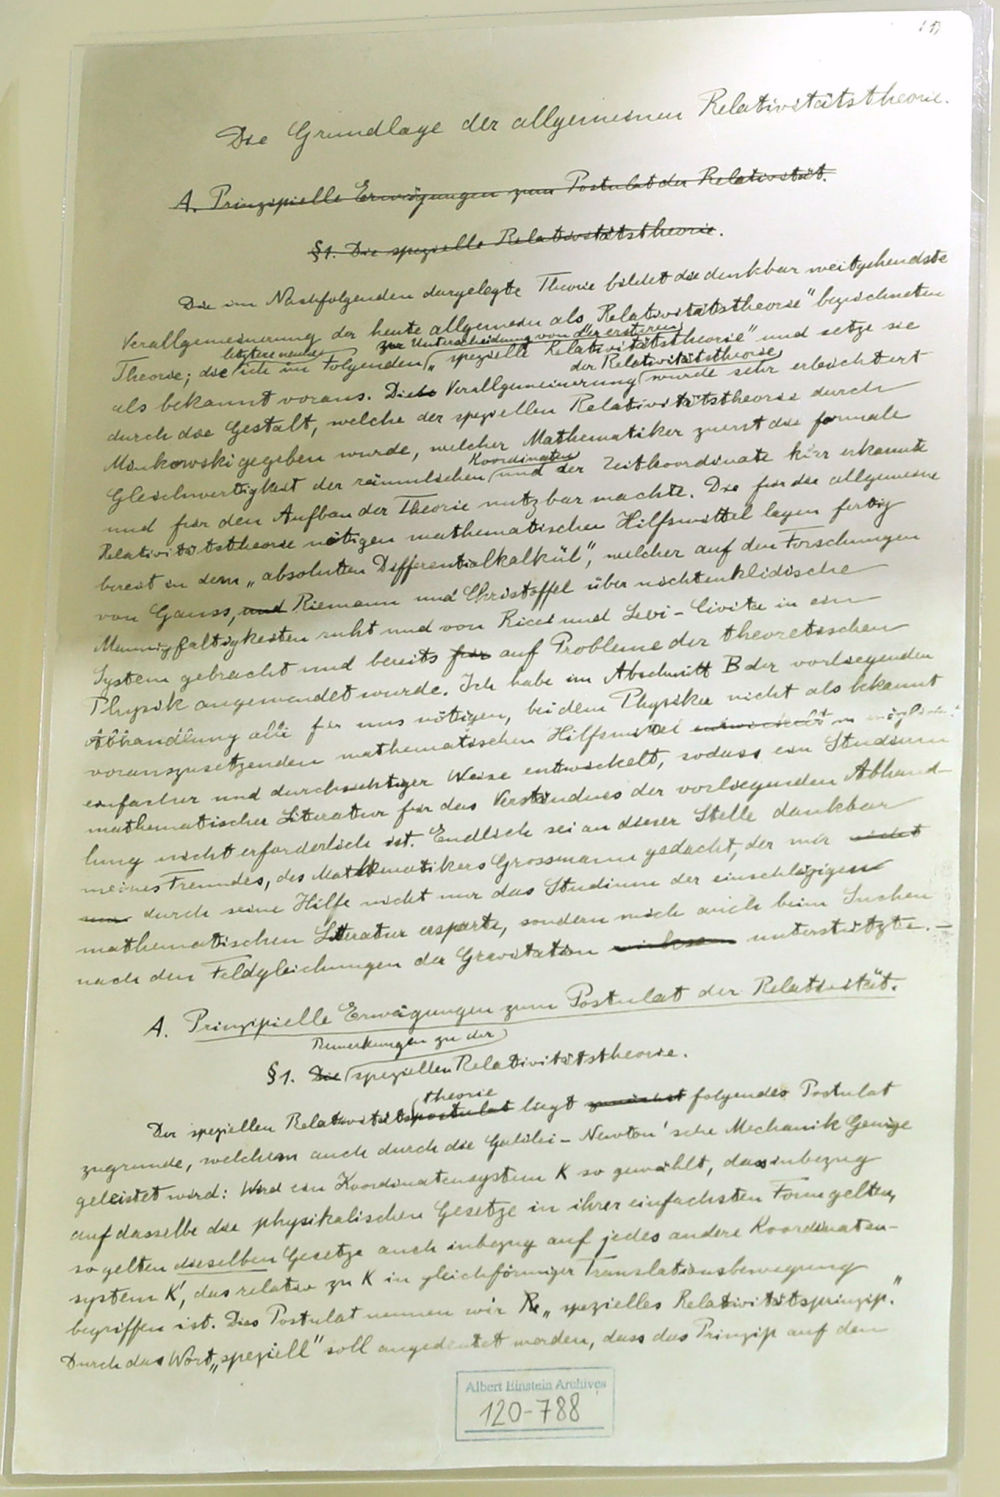 Die Grundlage der allgemeinen Relativitätstheorie.
A. Prinzipielle Erwägungen zum Postulat der Relativität.
§1. Die spezielle Relativitätstheorie.
Die im Nachfolgenden dargelegte Theorie bildet die denkbar weitgehendste
Verallgemeinerung der heute allgemein als „Relativitätstheorie" bezeichneten
zur Unterscheidung von der ersteren
Theorie; die letztere nenne ich im Folgenden „spezielle Relativitätstheorie" und setze sie
der Relativitätstheorie
als bekannt voraus. Die Verallgemeinerung wurde sehr erleichtert
durch die Gestalt, welche der speziellen Relativitätstheorie durch
Minkowski gegeben wurde, welcher Mathematiker zuerst die formale
Koordinaten
Gleichwertigkeit der räumlichen und der Zeitkoordinate klar erkannte
und für den Aufbau der Theorie nutzbar machte. Die für die allgemeine
Relativitätstheorie nötigen mathematischen Hilfsmittel lagen fertig
bereit in dem „absoluten Differentialkalkül", welcher auf den Forschungen
von Gauss, und Riemann und Christoffel über nichteuklidische
Mannigfaltigkeiten ruht und von Ricci und Levi-Civita in ein
System gebracht und bereits für auf Probleme der theoretischen
Physik angewendet wurde. Ich habe im Abschnitt B der vorliegenden
Abhandlung alle für uns nötigen, bei dem Physiker nicht als bekannt
vorauszusetzenden mathematischen Hilfsmittel entwickelt in möglichst
einfacher und durchsichtiger Weise entwickelt, sodass ein Studium
mathematischer Literatur für das Verständnis der vorliegenden Abhand-
lung nicht erforderlich ist. Endlich sei an dieser Stelle dankbar
meines Freundes, des Mathematikers Grossmann gedacht, der mir nicht
nur durch seine Hilfe nicht nur das Studium der einschlägigen
mathematischen Literatur ersparte, sondern mich auch beim Suchen
nach den Feldgleichungen der Gravitation unterstützte. —
A. Prinzipielle Erwägungen zum Postulat der Relativität.
Bemerkungen zu der
§1. Die speziellen Relativitätstheorie.
theorie
Der speziellen Relativitätspostulat liegt zunächst folgendes Postulat
zugrunde, welchem auch durch die Galilei-Newton'sche Mechanik Genüge
geleistet wird: Wird ein Koordinatensystem K so gewählt, dass inbezug
auf dasselbe die physikalischen Gesetze in ihrer einfachsten Form gelten,
so gelten dieselben Gesetze auch inbezug auf jedes andere Koordinaten-
system K', das relativ zu K in gleichförmiger Translationsbewegung
begriffen ist. Dies Postulat nennen wir Re „spezielles Relativitätsprinzip."
Durch das Wort „speziell" soll angedeutet werden, dass das Prinzip auf den
Albert Einstein Archives
120-788